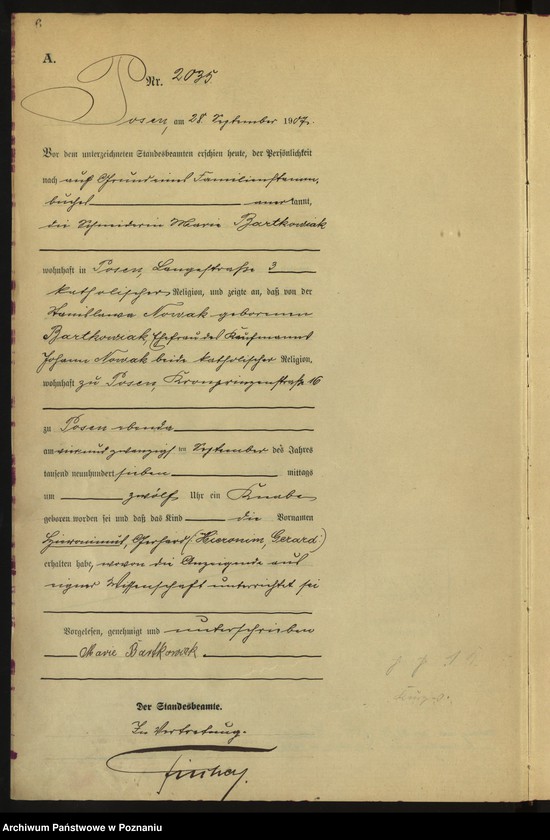 A.
Nr. 2035
Posen, am 28 September 1907.
Vor dem unterzeichneten Standesbeamten erschien heute, der Persönlichkeit
nach auf Grund eines Familienstamm,
buches anerkannt,
die Schneiderin Marie Bartkowiak
wohnhaft in Posen, Langestraße 3
katholischer Religion, und zeigte an, daß von der
Stanislawa Nowak geborenen
Bartkowiak, Ehefrau des Kaufmanns
Johann Nowak beide katholischer Religion,
wohnhaft zu Posen, Kronprinzenstraße 16
zu Posen ebenda
am vier und zwanzigsten September des Jahres
tausend neunhundert sieben mittags
um zwölf Uhr ein Knabe
geboren worden sei und daß das Kind die Vornamen
Hieronimus, Gerhard (Hieronim, Gerard)
erhalten habe, wovon die Anzeigende aus
eigner Wissenschaft unterrichtet sei
Vorgelesen, genehmigt und unterschrieben
Marie Bartkowiak
Der Standesbeamte.
In Vertretung.
Archiwum Państwowe w Poznaniu